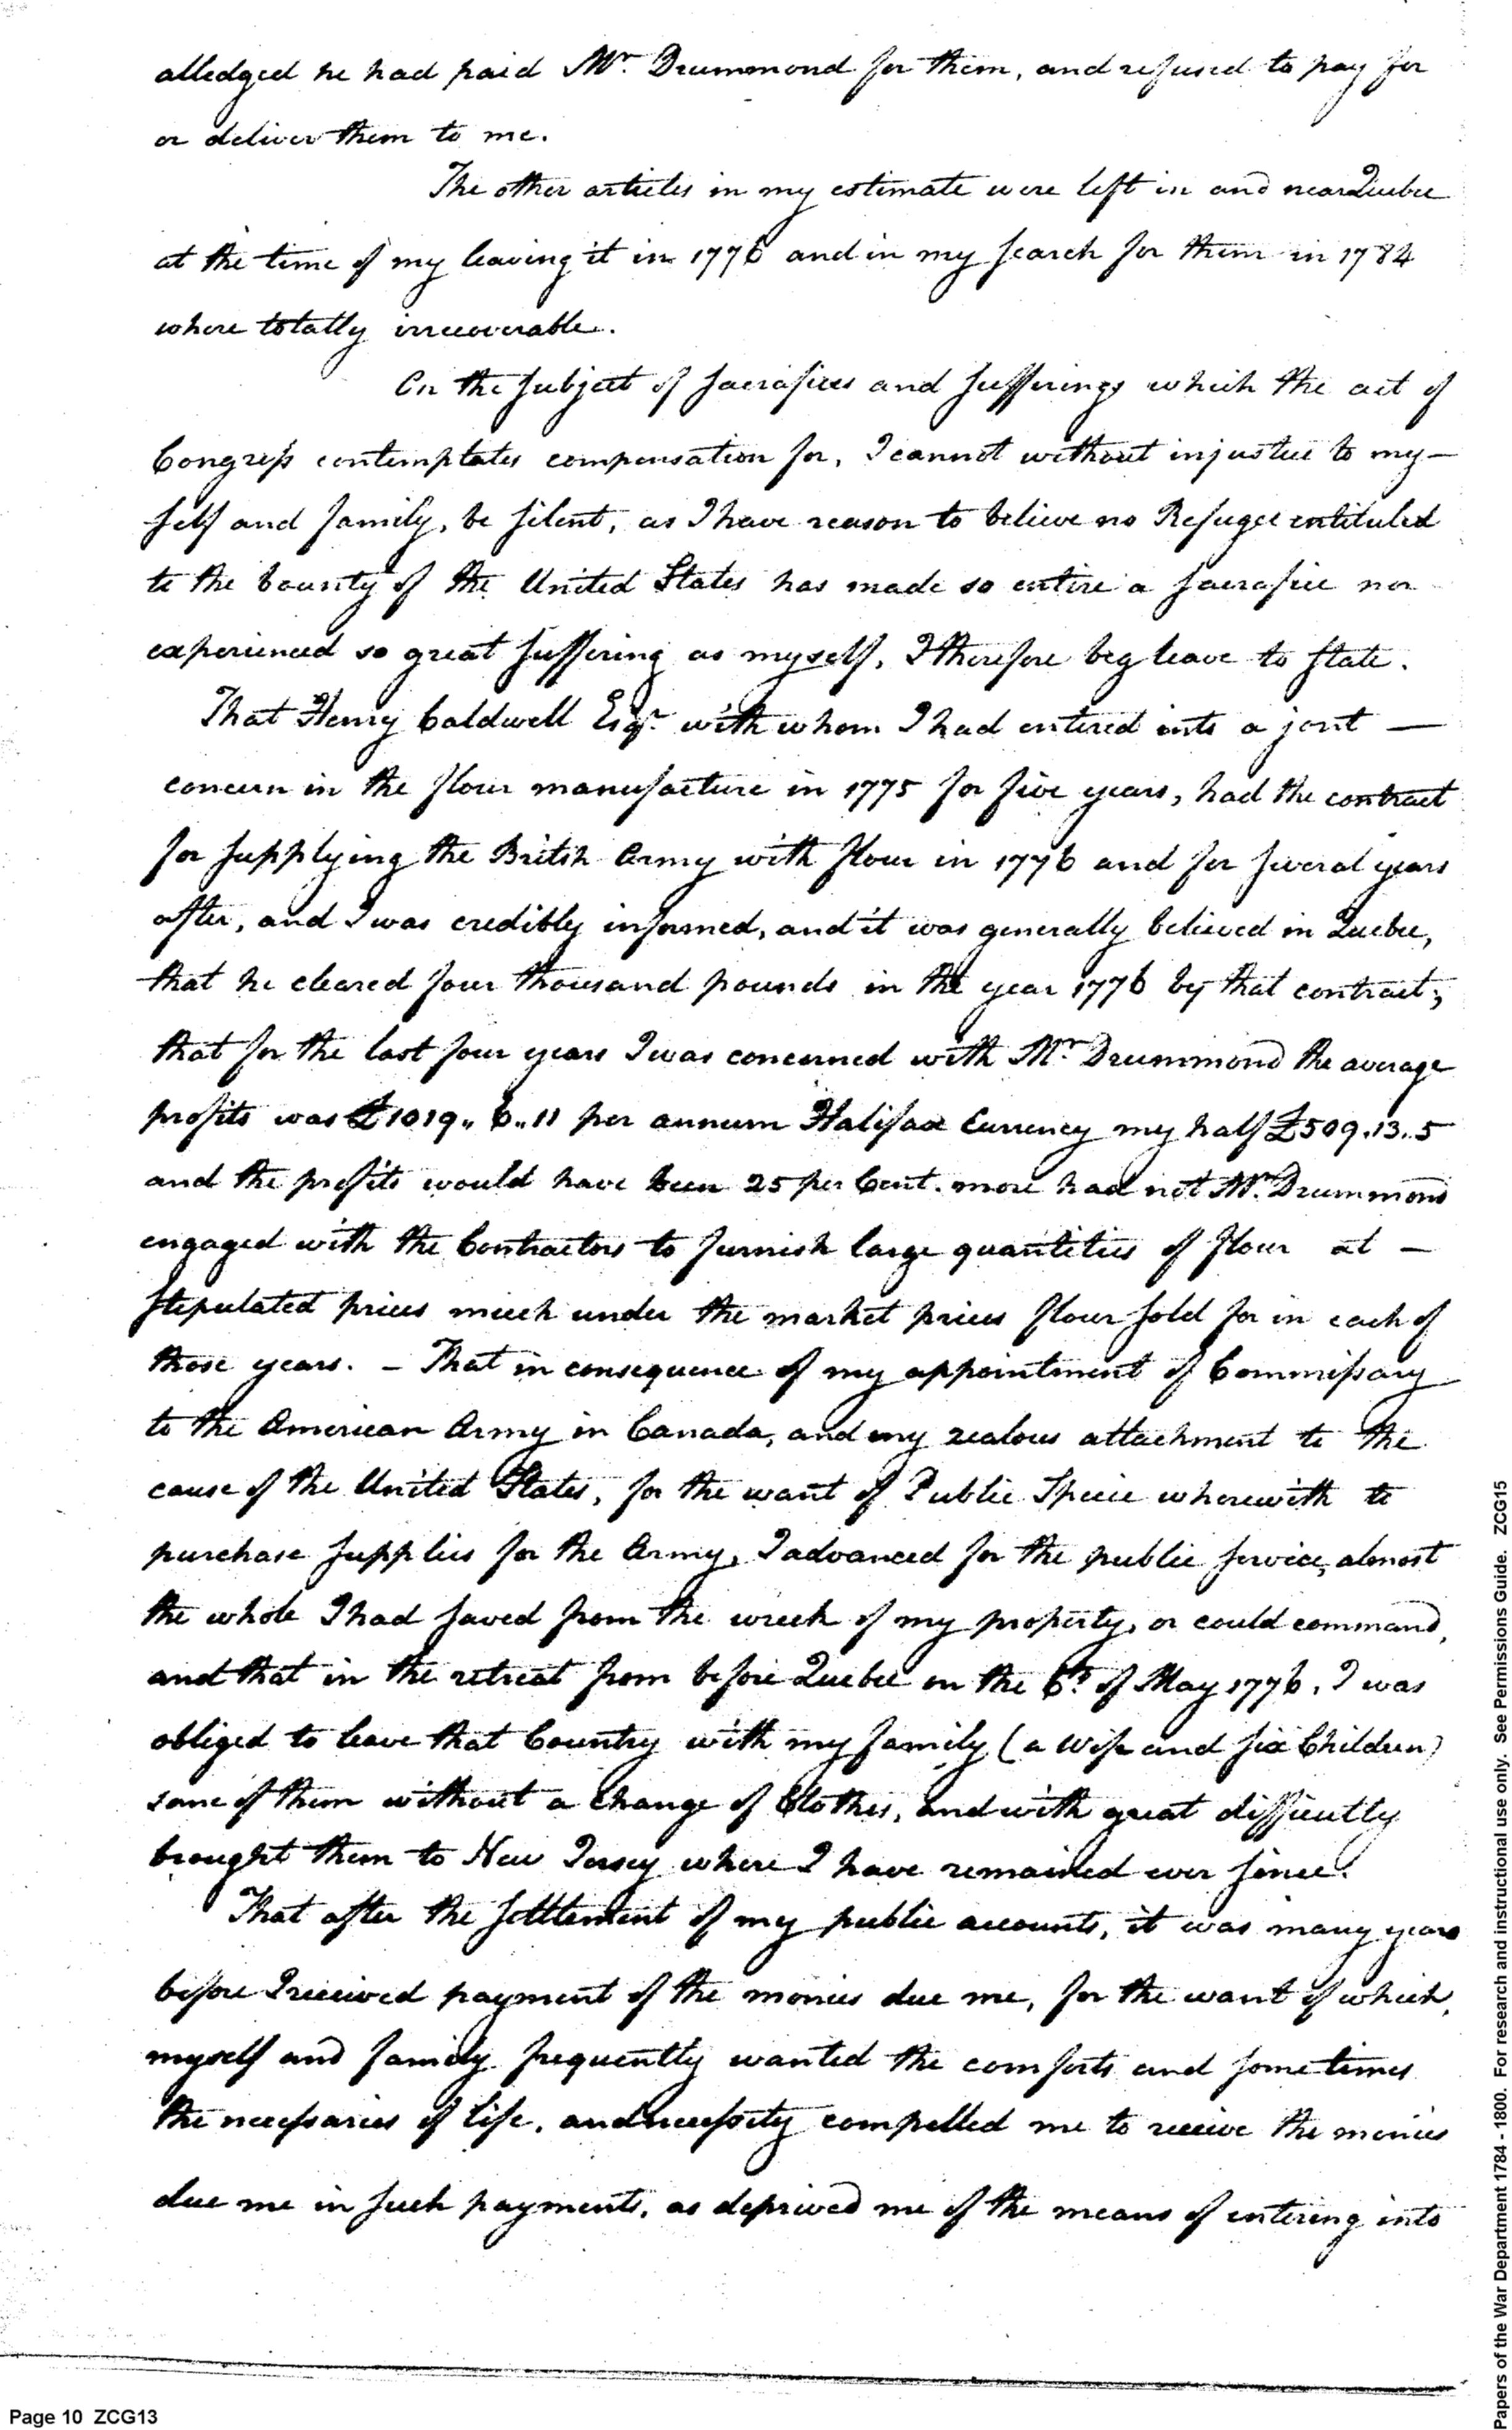 alledged he had paid Mr. Drummond for them, and refused to pay for
or deliver them to me.
The other articles in my estimate were left in and near Quebec
at the time of my leaving it in 1776 and in my search for them in 1784
where totally irrecoverable.
On the subject of sacrafices and sufferings which the act of
Congress contemplates compensation for, I cannot without injustice to my-
self and family, be silent, as I have reason to believe no Refugee entituled
to the bounty of the United States has made so entire a sacrafice nor
experienced so great suffering as myself, I therefore beg leave to state.
That Henry Caldwell Esqr. with whom I had entered into a joint —
concern in the flour manufacture in 1775 for five years, had the contract
for supplying the British Army with flour in 1776 and for several years
after, and I was credibly informed, and it was generally believed in Quebec,
that he cleared four thousand pounds in the year 1776 by that contract;
that for the last four years I was concerned with Mr. Drummond the average
profits was £1019.. 6.. 11 per annum Halifax Currency my half £509..13..5
and the profits would have been 25 per Cent. more had not Mr. Drummond
engaged with the Contractors to furnish large quantities of flour at —
stipulated prices much under the market prices flour sold for in each of
those years. — That in consequence of my appointment of Commissary
to the American Army in Canada, and my zealous attachment to the
cause of the United States, for the want of Public Specie wherewith to
purchase supplies for the Army, I advanced for the public service, almost
the whole I had saved from the wreck of my property, or could command,
and that in the retreat from before Quebec on the 6th. of May 1776, I was
obliged to leave that Country with my family (a Wife and six Children)
some of them without a change of Clothes, and with great difficulty
brought them to New Jersey where I have remained ever since.
That after the settlement of my public accounts, it was many years
before I received payment of the monies due me, for the want of which,
myself and family frequently wanted the comforts and sometimes
the necessaries of life, and necessity compelled me to receive the monies
due me in such payments, as deprived me of the means of entering into
Page 10 ZCG13
Papers of the War Department 1784 - 1800. For research and instructional use only. See Permissions Guide. ZCG15